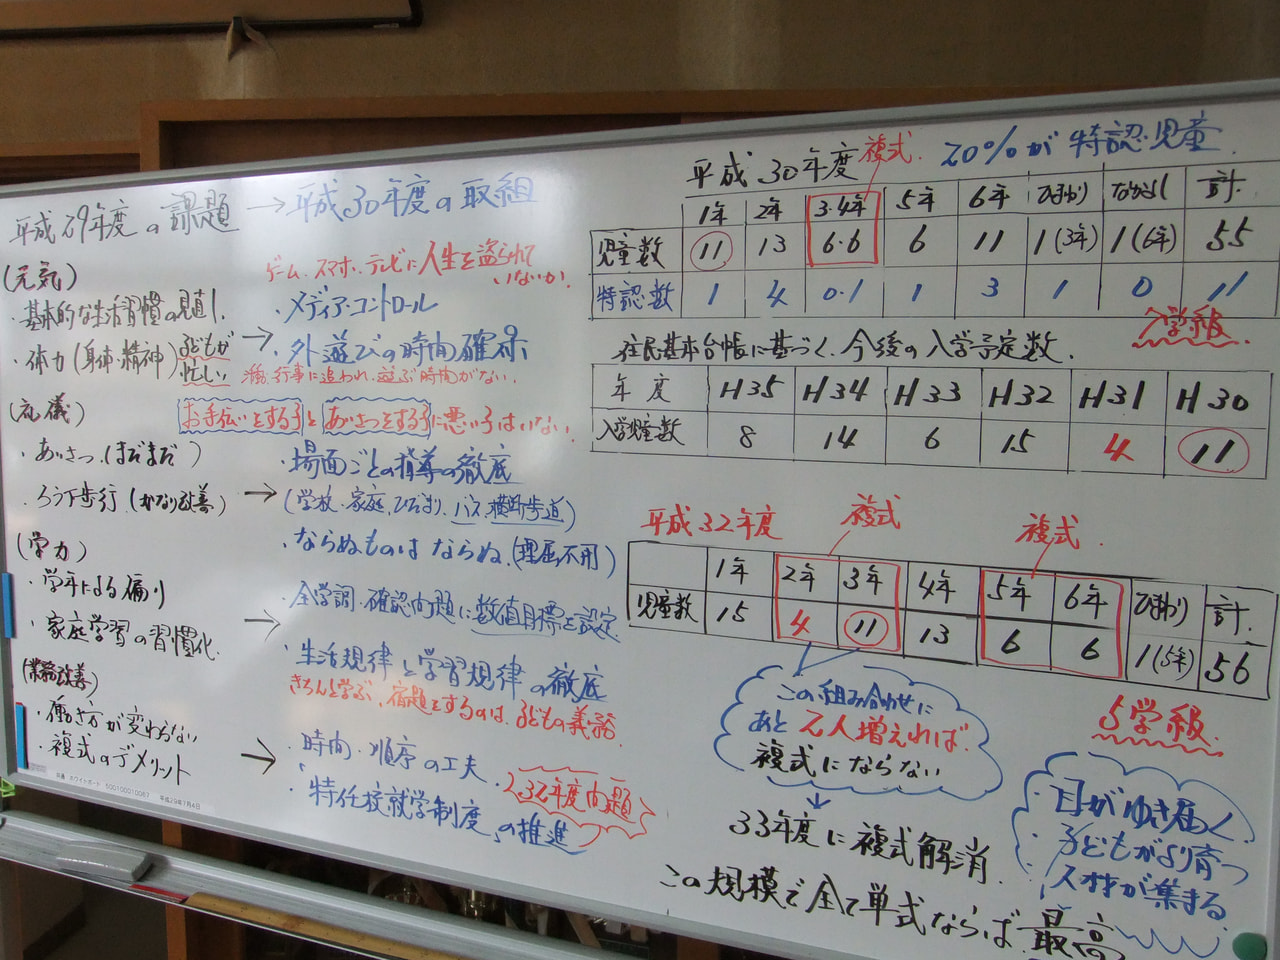 平成29年度の課題 → 平成30年度の取組
(元気)
・基本的な生活習慣の見直し
・体力(身体・精神)
子どもが
忙しい
(礼儀)
・あいさつ(まだまだ)
・ろう下歩行(かなり改善)
(学力)
・学年による偏り
・家庭学習の習慣化
(業務改善)
・働き方が変わらない
・複式のデメリット
ゲーム、スマホ、テレビに人生を盗られて
いないか。
・メディアコントロール
→ ・外遊びの時間確保
行事に追われ、遊ぶ時間がない。
お手伝いをする子とあいさつをする子に悪い子はいない。
・場面ごとの指導の徹底
→ (学校、家庭、ひだまり、バス、横断歩道)
・ならぬものはならぬ(理屈不用)
→ ・全学調・確認問題に数値目標を設定
・生活規律と学習規律の徹底
きちんと学ぶ、宿題をするのは、子どもの義務
→ ・時間、順序の工夫
・特任校就学制度の推進
32年度問題
平成30年度
複式
20%が特認児童
1年 2年 3・4年 5年 6年 ひまわり なかよし 計
児童数 11 13 6・6 6 11 1(3年) 1(6年) 55
特認数 1 4 0・1 1 3 1 0 11
学級
住民基本台帳に基づく、今後の入学予定数
年度 H35 H34 H33 H32 H31 H30
入学児童数 8 14 6 15 4 11
平成32年度
複式
複式
1年 2年 3年 4年 5年 6年 ひまわり 計
児童数 15 4 11 13 6 6 1(5年) 56
5学級
この組み合わせに
あと2人増えれば
複式にならない
↓
33年度に複式解消
この規模で全て単式ならば最高
・目がゆき届く
・子どもがより育つ
・人材が集まる